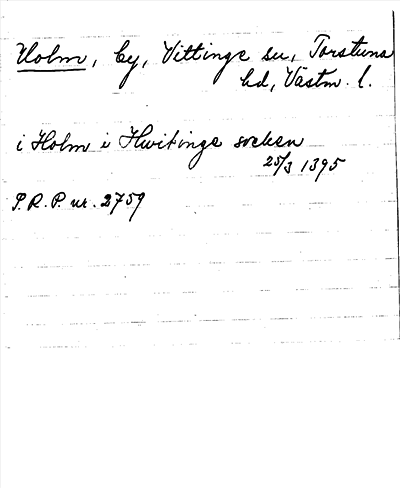 Holm, by, Vittinge sn, Torstuna
hd, Västm. l.
i Holm i Hwitinge socken
25/3 1395
P.R.P. nr. 2759